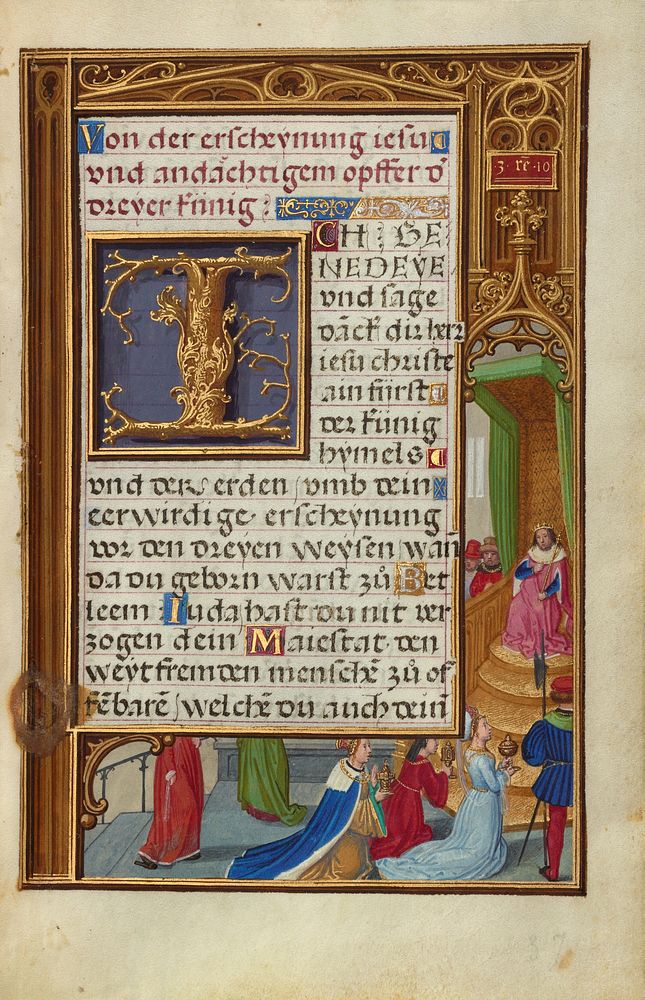 Von der erscheynung iesu
vnd andåchtigem opffer d̄
dreyer künig :
3 · re · 10
ICH : BE
NEDEYE
vnd sage
dāck dir herr
iesu christe
ain fürst
der künig
hymels
vnd der erden / vmb dein
eerwirdige erscheynung
vor den dreyen weysen / wañ
da du geborn warst zů Bet
leem Iuda hast du nit ver
zogen dein Maiestat den
weyt fremden menschē zů of
fēbarē / welchē du auch dein
37